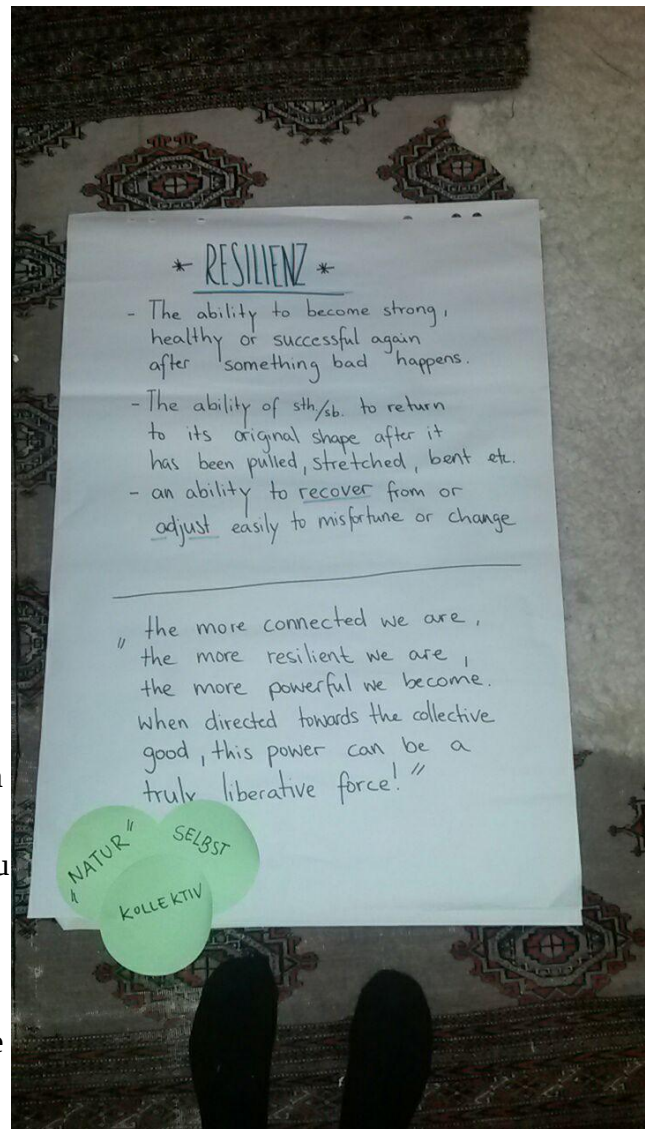 * RESILIENZ *
- The ability to become strong,
healthy or successful again
after something bad happens.
- The ability of sth./sb. to return
to its original shape after it
has been pulled, stretched, bent etc.
- an ability to recover from or
adjust easily to misfortune or change
"the more connected we are,
the more resilient we are,
the more powerful we become.
When directed towards the collective
good, this power can be a
truly liberative force!"
"NATUR"
SELBST
KOLLEKTIV